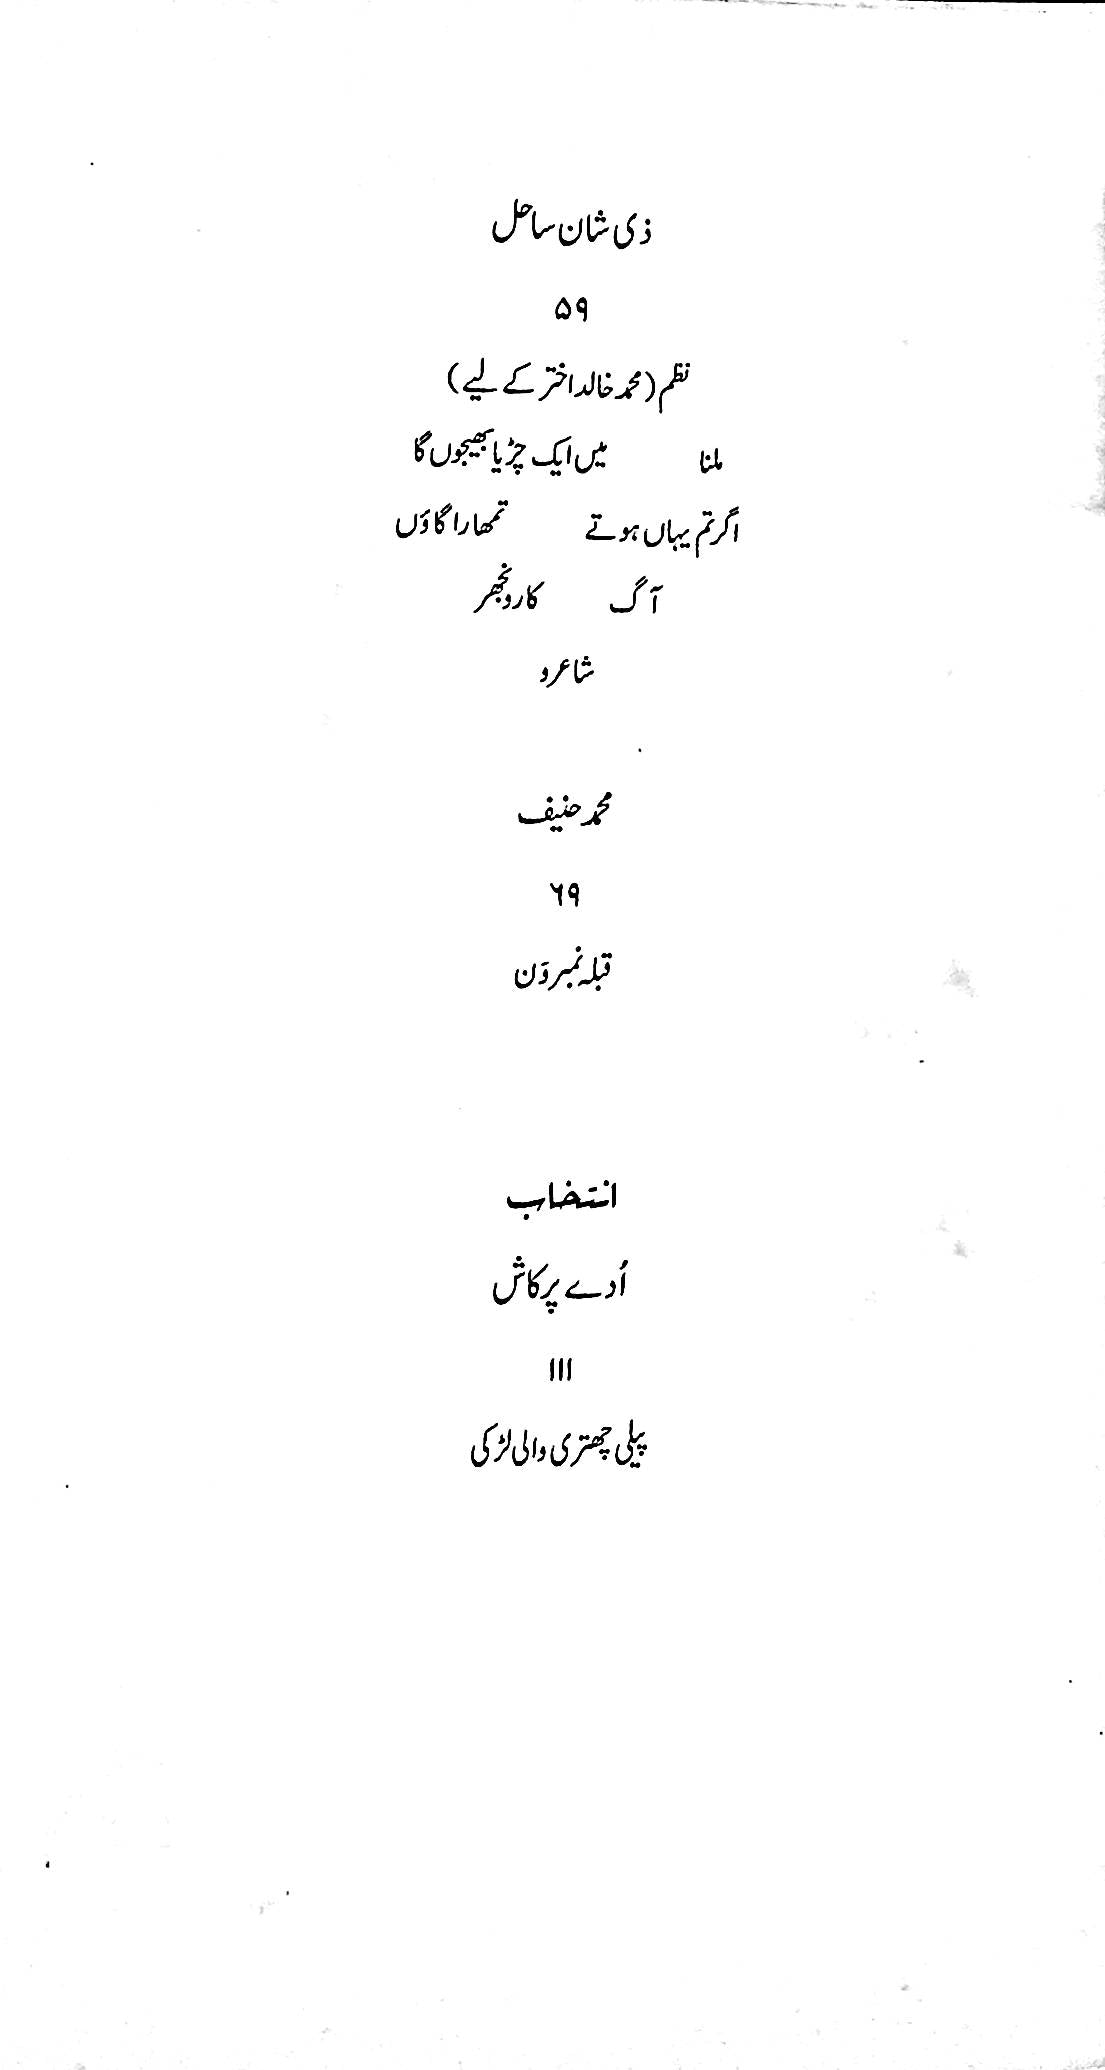 ذی شان ساحل
۵۹
نظم (محمد خالد اختر کے لیے)
ملنا میں ایک چڑیا بھیجوں گا
اگر تم یہاں ہوتے تمھارا گاؤں
آگ کارونجھر
شاعرو
محمد حنیف
۶۹
قبلہ نمبر وَن
انتخاب
اُدے پرکاش
۱۱۱
پیلی چھتری والی لڑکی